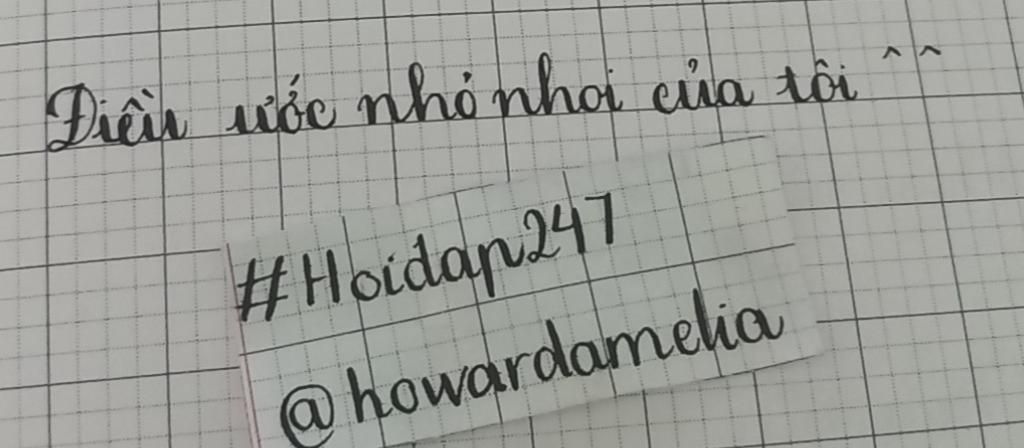 Điều ước nhỏ nhoi của tôi ^^
#Hoidap247
@howardamelia